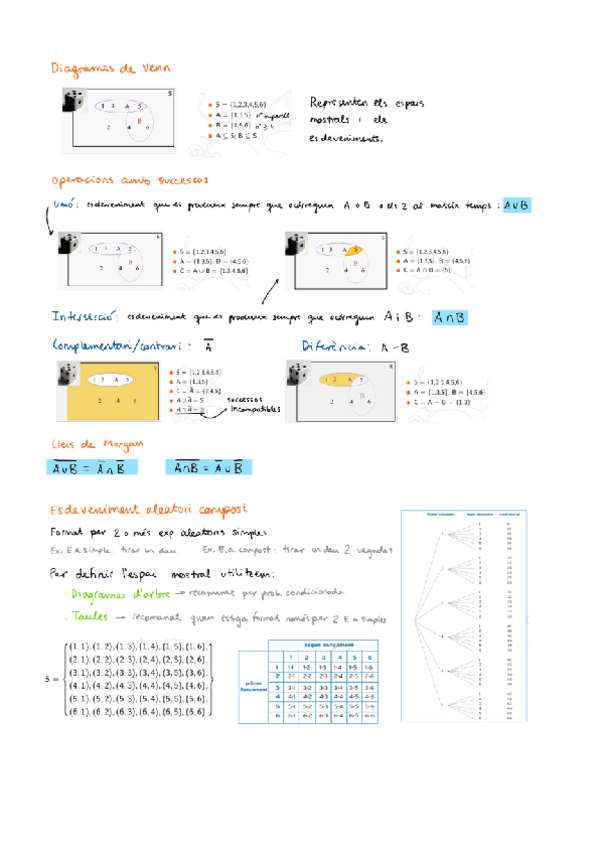 Diagrames de Venn
S
1 3 A 5
B
2 4 6
S = {1,2,3,4,5,6}
A = {1,3,5} nº imparell
B = {4,5,6} nº ≥ 4
A ⊆ S; B ⊆ S
Representen els espais
mostrals i els
esdeveniments.
Operacions amb successos
Unió: esdeveniment que es produeix sempre que ocorreguin A o B o els 2 al mateix temps: A∪B
S
1 3 A 5
B
2 4 6
S = {1,2,3,4,5,6}
A = {1,3,5}; B = {4,5,6}
C = A ∪ B = {1,3,4,5,6}
S
1 3 A 5
B
2 4 6
S = {1,2,3,4,5,6}
A = {1,3,5}; B = {4,5,6}
C = A ∩ B = {5}
Intersecció: esdeveniment que es produeix sempre que ocorreguin A i B: A∩B
Complementari/contrari: A̅
Diferència: A - B
S
1 3 A 5
2 4 6
S = {1,2,3,4,5,6}
A = {1,3,5}
C = A̅ = {2,4,6}
A ∪ A̅ = S
A ∩ A̅ = ∅
successos
incompatibles
S
1 3 A 5
B
2 4 6
S = {1,2,3,4,5,6}
A = {1,3,5}; B = {4,5,6}
C = A - B = {1,3}
Lleis de Morgan
A̅∪̅B̅ = A̅ ∩ B̅
A̅∩̅B̅ = A̅ ∪ B̅
Esdeveniment aleatori compost
Format per 2 o més exp. aleatoris simples
Ex. E.a simple: tirar un dau Ex. E.a. compost: tirar un dau 2 vegades
Per definir l'espai mostral utilitzem:
· Diagrames d'arbre → recomanat per prob. condicionada
· Taules → recomanat quan estiga format només per 2 E.a simples
S =
(1, 1), (1, 2), (1, 3), (1, 4), (1, 5), (1, 6),
(2, 1), (2, 2), (2, 3), (2, 4), (2, 5), (2, 6),
(3, 1), (3, 2), (3, 3), (3, 4), (3, 5), (3, 6),
(4, 1), (4, 2), (4, 3), (4, 4), (4, 5), (4, 6),
(5, 1), (5, 2), (5, 3), (5, 4), (5, 5), (5, 6),
(6, 1), (6, 2), (6, 3), (6, 4), (6, 5), (6, 6)
segon llançament
1 2 3 4 5 6
primer
llançament
1 1-1 1-2 1-3 1-4 1-5 1-6
2 2-1 2-2 2-3 2-4 2-5 2-6
3 3-1 3-2 3-3 3-4 3-5 3-6
4 4-1 4-2 4-3 4-4 4-5 4-6
5 5-1 5-2 5-3 5-4 5-5 5-6
6 6-1 6-2 6-3 6-4 6-5 6-6